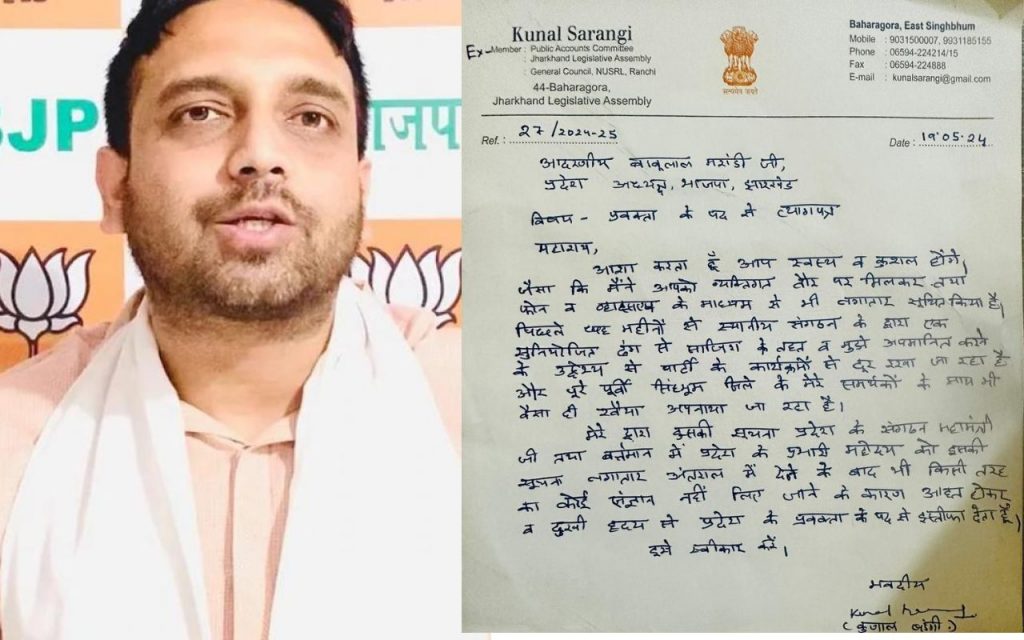 BJP
भाजपा
Kunal Sarangi
Ex-Member : Public Accounts Committee
: Jharkhand Legislative Assembly
: General Council, NUSRL, Ranchi
44-Baharagora,
Jharkhand Legislative Assembly
सत्यमेव जयते
Baharagora, East Singhbhum
Mobile : 9031500007, 9931185155
Phone : 06594-224214/15
Fax : 06594-224888
E-mail : kunalsarangi@gmail.com
Ref. : 27/2024-25
Date : 19.05.24
आदरणीय बाबूलाल मरांडी जी,
प्रदेश अध्यक्ष, भाजपा, झारखंड
विषय - प्रवक्ता के पद से त्यागपत्र
महाशय,
आशा करता हूँ आप स्वस्थ व कुशल होंगे,
जैसा कि मैंने आपको व्यक्तिगत तौर पर मिलकर तथा
फोन व व्हाट्सएप्प के माध्यम से भी लगातार सूचित किया है।
पिछले छह महीनों से स्थानीय संगठन के द्वारा एक
सुनियोजित ढंग से साजिश के तहत व मुझे अपमानित करने
के उद्देश्य से पार्टी के कार्यक्रमों से दूर रखा जा रहा है
और पूरे पूर्वी सिंहभूम जिले के मेरे समर्थकों के साथ भी
वैसा ही रवैया अपनाया जा रहा है।
मेरे द्वारा इसकी सूचना प्रदेश के संगठन महामंत्री
जी तथा वर्तमान में प्रदेश के प्रभारी महोदय को इसकी
सूचना लगातार अंतराल में देने के बाद भी किसी तरह
का कोई संज्ञान नहीं लिए जाने के कारण आहत होकर
व दुखी हृदय से प्रदेश के प्रवक्ता के पद से इस्तीफा देता हूँ।
इसे स्वीकार करें।
भवदीय
Kunal
(कुणाल षाड़ंगी)